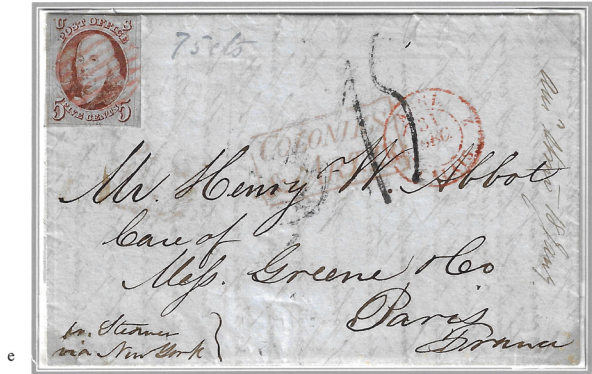 U S
POST OFFICE
5 FIVE CENTS 5
75 cts
15
COLONIES
Mr. Henry W. Abbot
Care of
Mess. Greene & Co
Paris
France
pr. Steamer
via New York
e